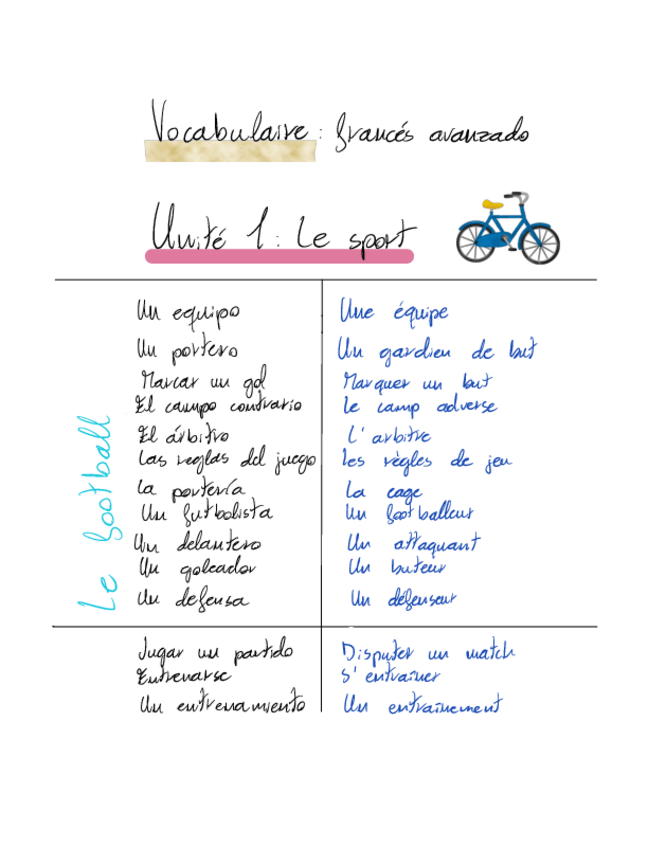 Vocabulaire: francés avanzado
Unité 1: Le sport
Le football
Un equipo Une équipe
Un portero Un gardien de but
Marcar un gol Marquer un but
El campo contrario Le camp adverse
El árbitro L'arbitre
Las reglas del juego Les règles de jeu
La portería La cage
Un futbolista Un footballeur
Un delantero Un attaquant
Un goleador Un buteur
Un defensa Un défenseur
Jugar un partido Disputer un match
Entrenarse S'entraîner
Un entrenamiento Un entraînement